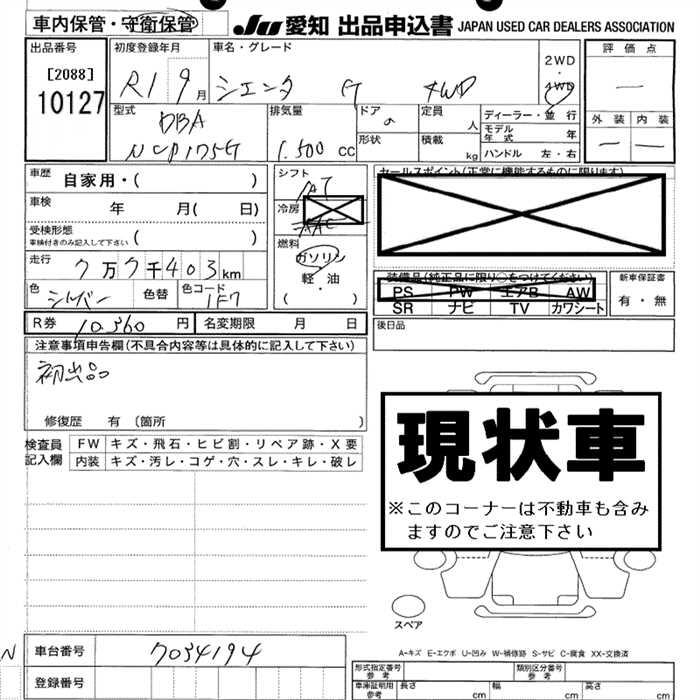 車内保管・守衛保管 JU 愛知 出品申込書 JAPAN USED CAR DEALERS ASSOCIATION
出品番号 初度登録年月 車名・グレード 2WD・4WD 評価点
[2088]
10127
R1 9月 シエンタ G 4WD ー
型式 排気量 ドアの形状 定員 人 ディーラー・並行 外装 内装
DBA
NCP175G 1.500 cc 積載 kg モデル年式 年 ー ー
ハンドル 左・右
車歴 自家用・( ) シフト セールスポイント(正常に機能するものに限ります)
車検 年 月( 日) 冷房
受検形態 ( )
車検付きのみ記入して下さい
燃料
走行 7万7千403km ガソリン・軽油 装備品(純正品に限り○をつけてください) 新車保証書
( ) PS PW エアB AW 有・無
色 シルバー 色替 色コード 1F7 SR ナビ TV カワシート
R券 10,360 円 名変期限 月 日 後日品
注意事項申告欄(不具合内容等は具体的に記入して下さい)
初出品
修復歴 有 〔箇所 〕
現状車
※このコーナーは不動車も含み
ますのでご注意下さい
検査員記入欄 FW キズ・飛石・ヒビ割・リペア跡・X要
内装 キズ・汚レ・コゲ・穴・スレ・キレ・破レ
スペア
A-キズ E-エクボ U-凹み W-補修跡 S-サビ C-腐食 XX-交換済
N 車台番号 7034194
登録番号
形式指定番号 参考 類別区分番号 参考
車庫証明用 参考 長さ cm 幅 cm 高さ cm